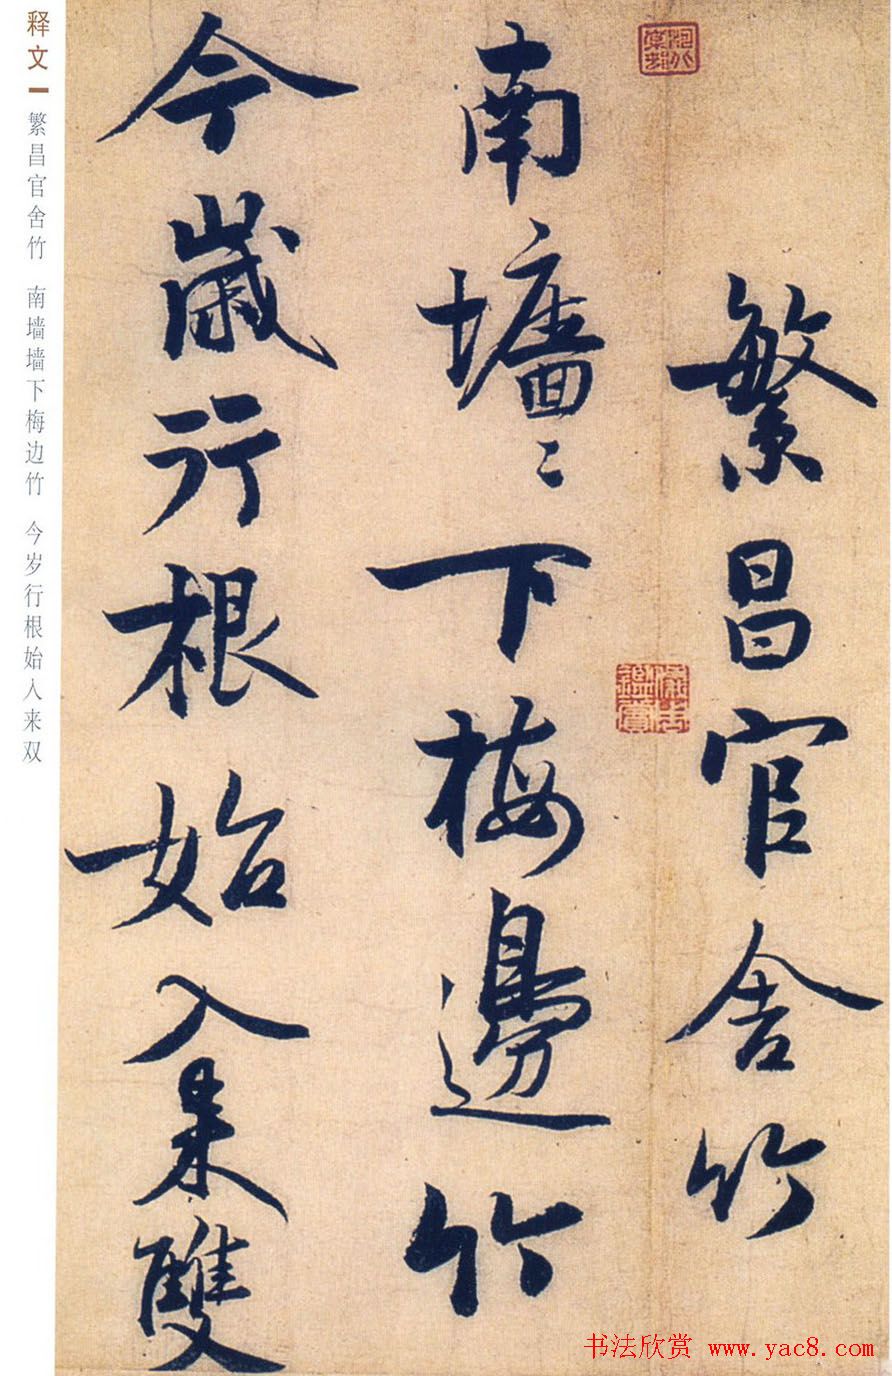 繁昌官舍竹
南墻〻下梅邊竹
今歲行根始入来雙
释文 繁昌官舍竹 南墙墙下梅边竹 今岁行根始入来双
书法欣赏 www.yac8.com